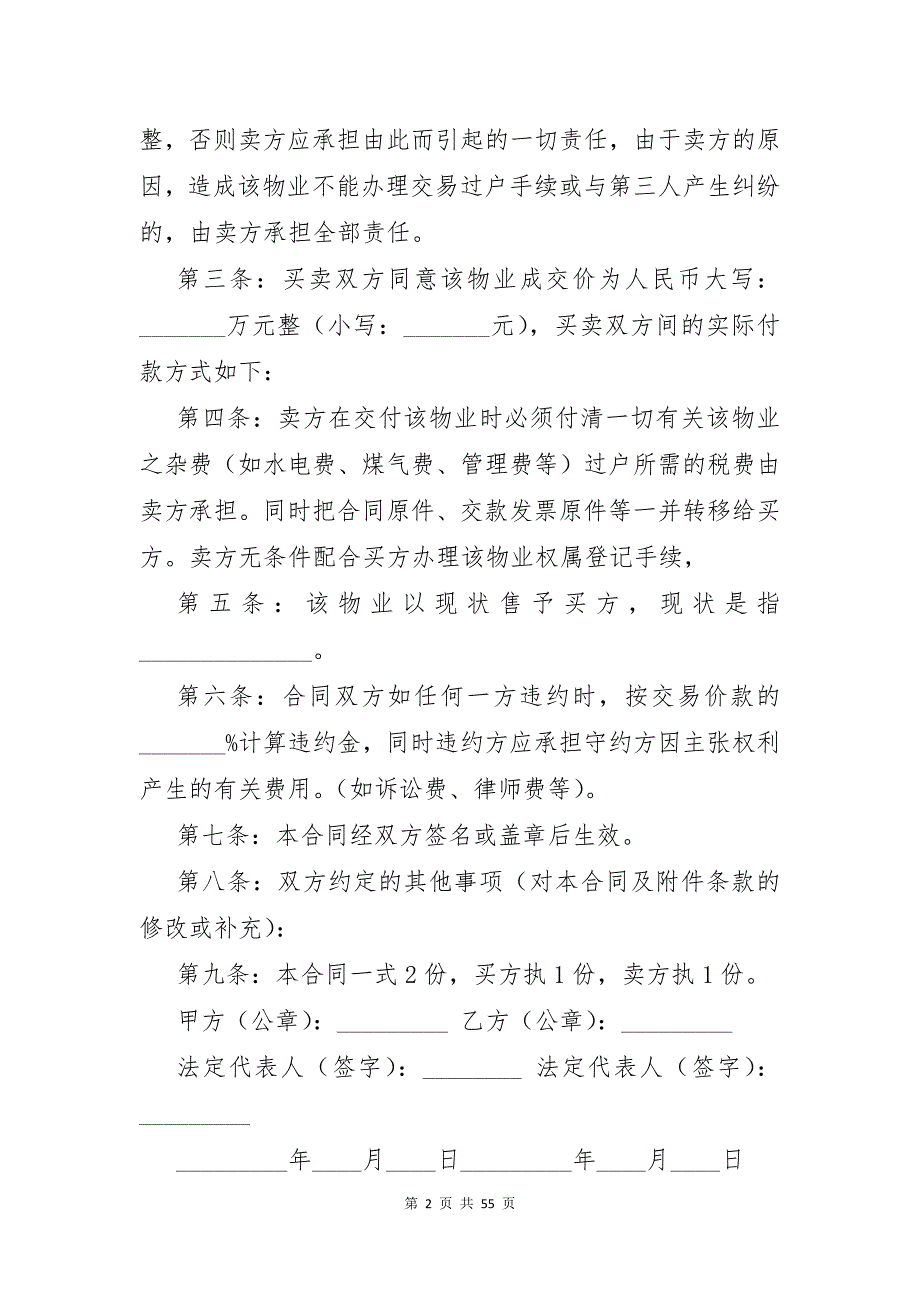 整，否则卖方应承担由此而引起的一切责任，由于卖方的原
因，造成该物业不能办理交易过户手续或与第三人产生纠纷
的，由卖方承担全部责任。
第三条：买卖双方同意该物业成交价为人民币大写：
_______万元整（小写：_______元），买卖双方间的实际付
款方式如下：
第四条：卖方在交付该物业时必须付清一切有关该物业
之杂费（如水电费、煤气费、管理费等）过户所需的税费由
卖方承担。同时把合同原件、交款发票原件等一并转移给买
方。卖方无条件配合买方办理该物业权属登记手续，
第五条：该物业以现状售予买方，现状是指
______________。
第六条：合同双方如任何一方违约时，按交易价款的
_______%计算违约金，同时违约方应承担守约方因主张权利
产生的有关费用。（如诉讼费、律师费等）。
第七条：本合同经双方签名或盖章后生效。
第八条：双方约定的其他事项（对本合同及附件条款的
修改或补充）：
第九条：本合同一式2份，买方执1份，卖方执1份。
甲方（公章）：_________ 乙方（公章）：_________
法定代表人（签字）：________ 法定代表人（签字）：
_________
_________年____月____日_________年____月____日
第 2 页 共 55 页